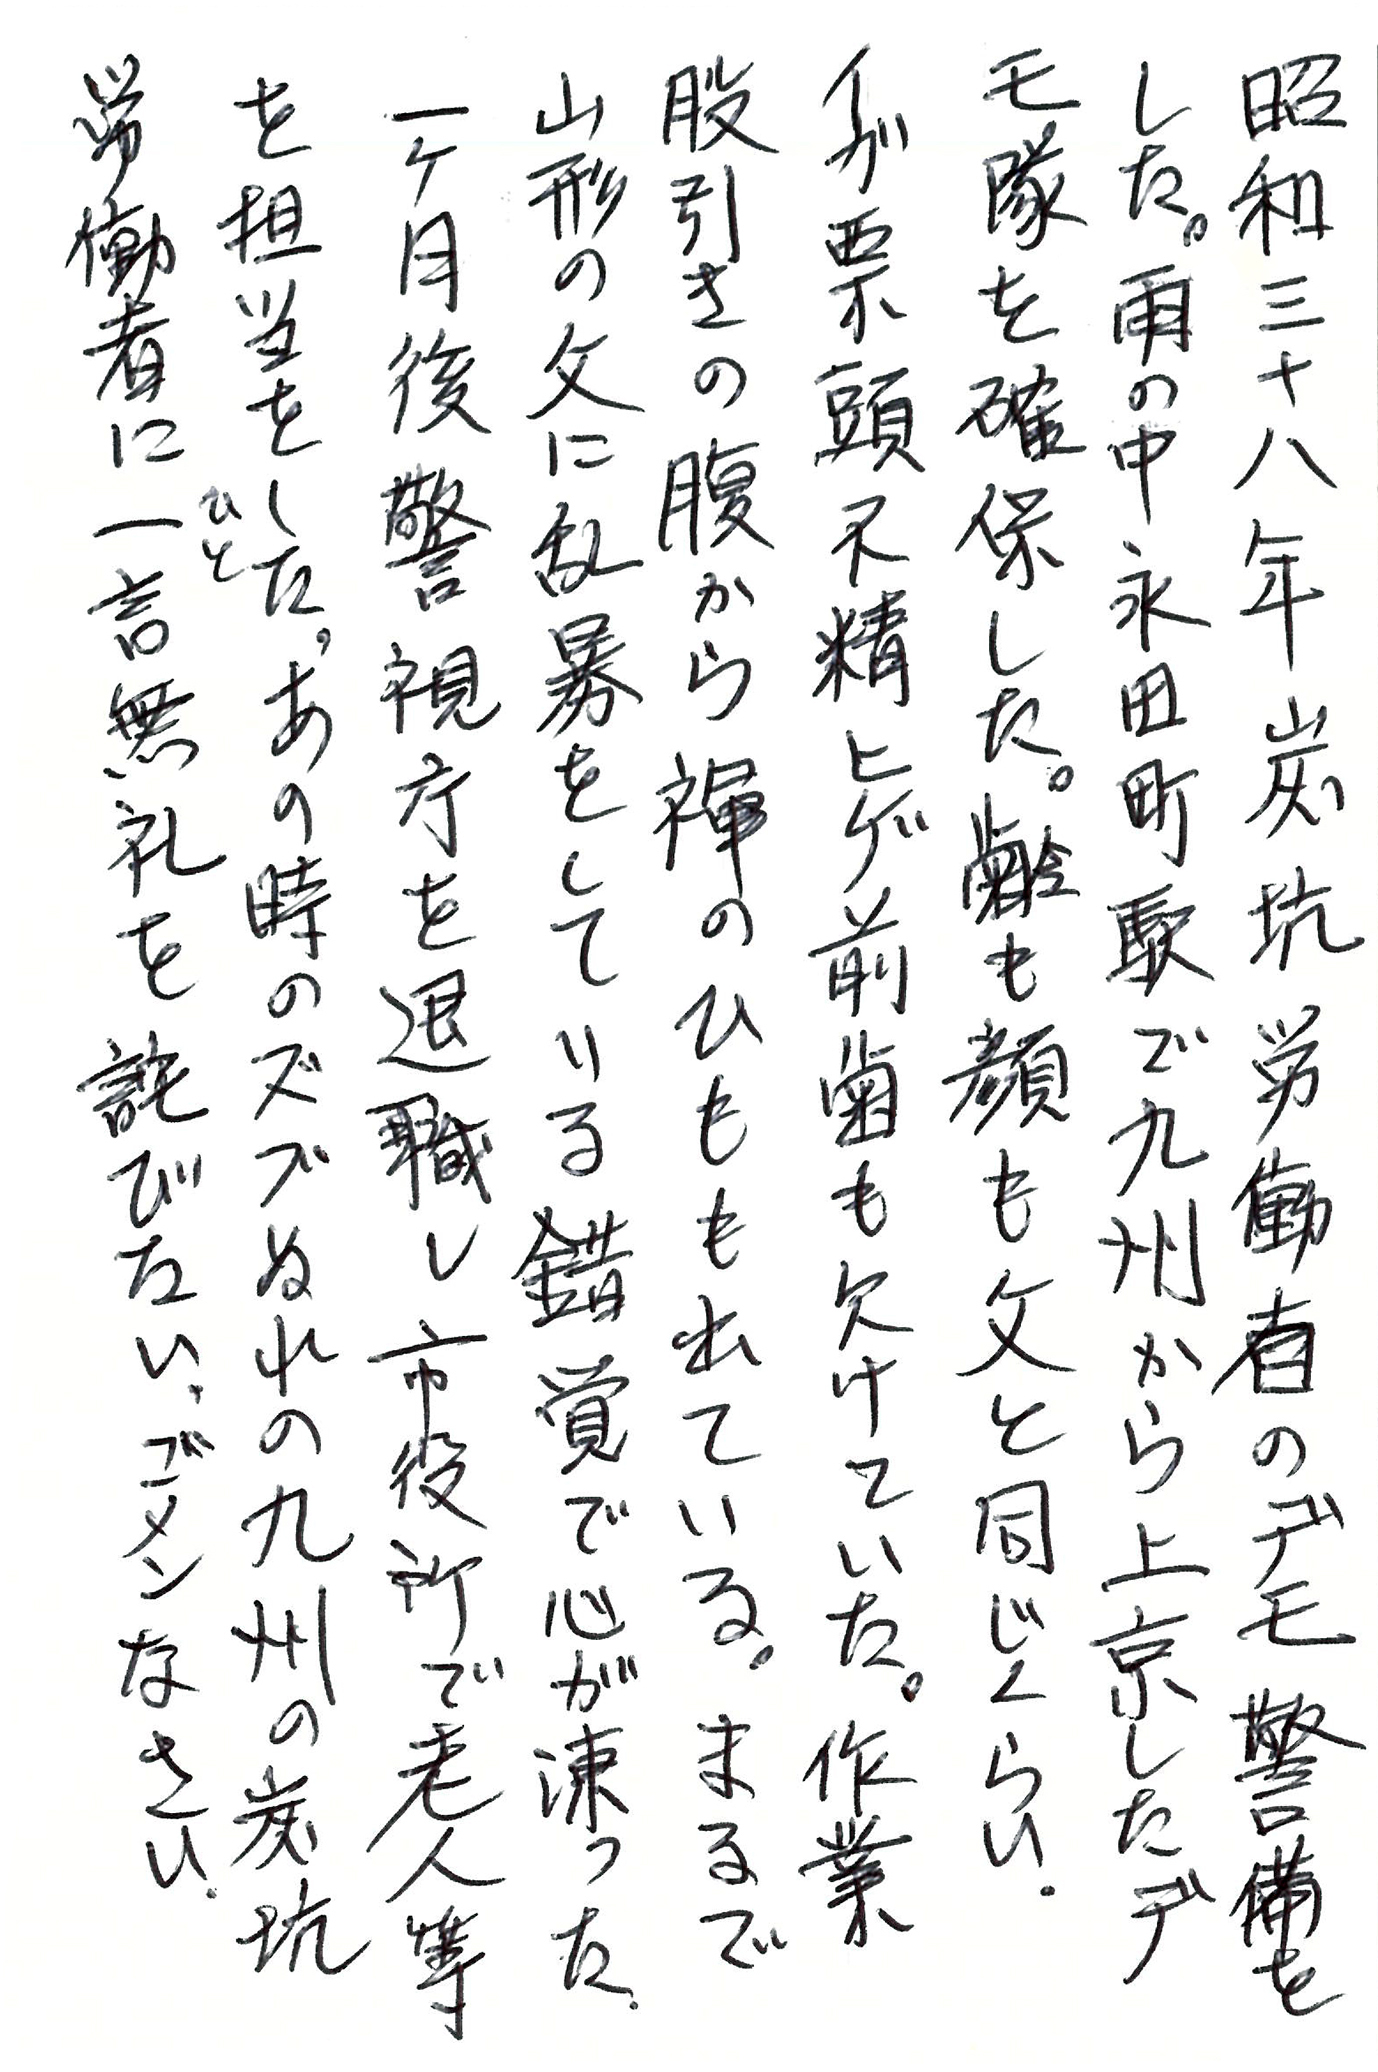 昭和三十八年炭坑労働者のデモ警備を
した。雨の中永田町駅で九州から上京したデ
モ隊を確保した。齢も顔も父と同じくらい。
イガ栗頭不精ヒゲ前歯も欠けていた。作業
股引きの腹から褌のひもも出ている。まるで
山形の父に乱暴をしている錯覚で心が凍った。
一ケ月後警視庁を退職し市役所で老人等
を担当をした。あの時のズブぬれの九州の炭坑
労働者に一言無礼を詫びたい、ゴメンなさい。
ひと